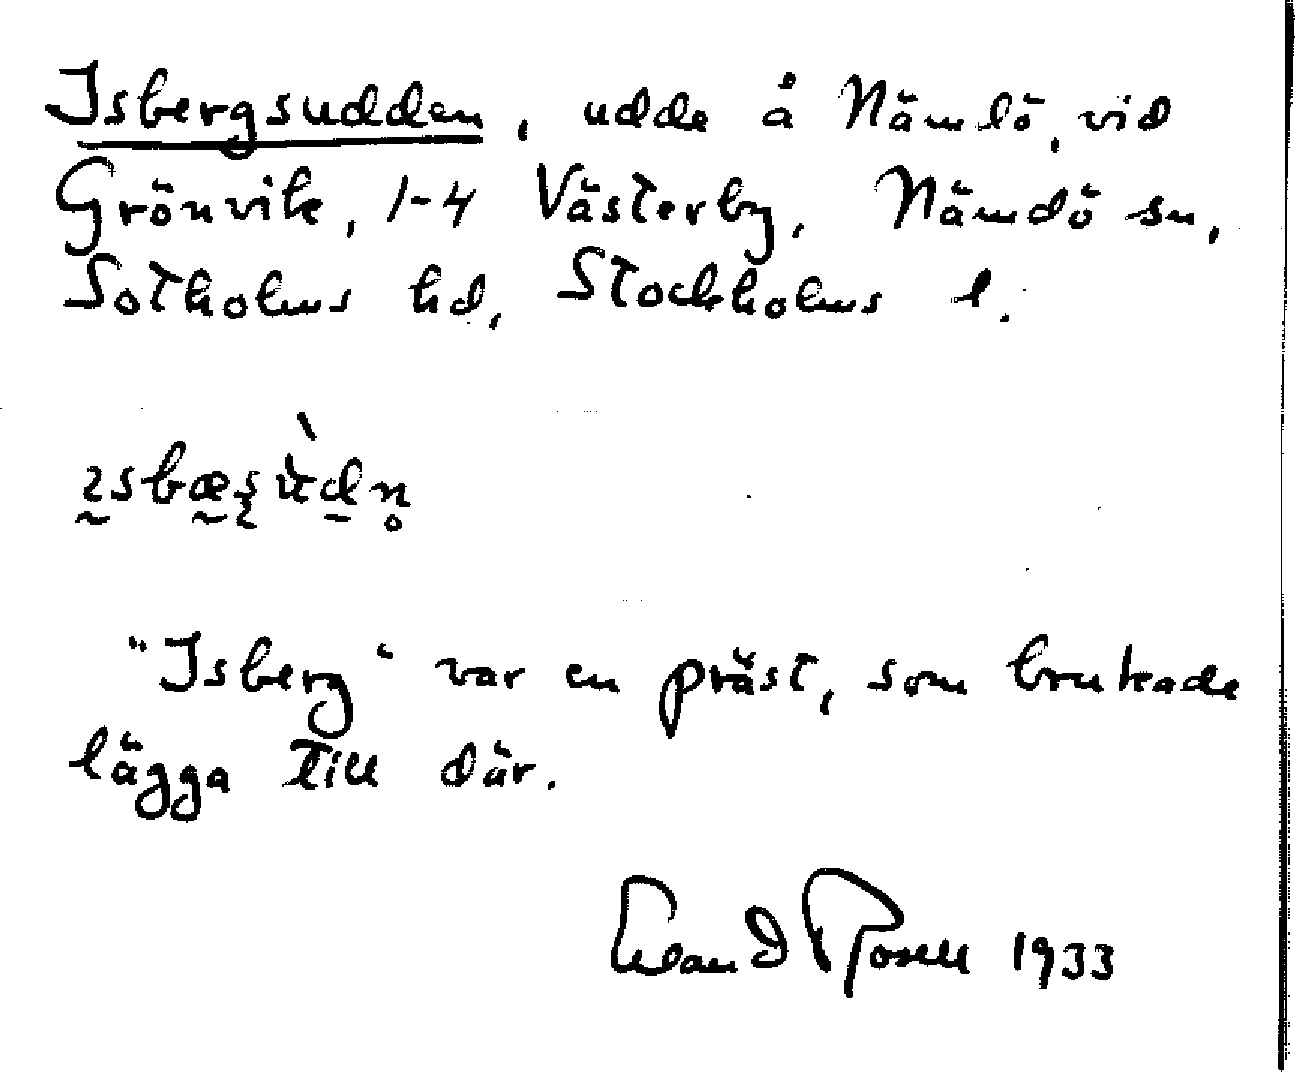 Isbergsudden, udde å Nämdö, vid
Grönvik, 1-4 Västerby, Nämdö sn,
Sotholms hd, Stockholms l.
"Isberg" var en präst, som brukade
lägga till där.
Erland Rosell 1933